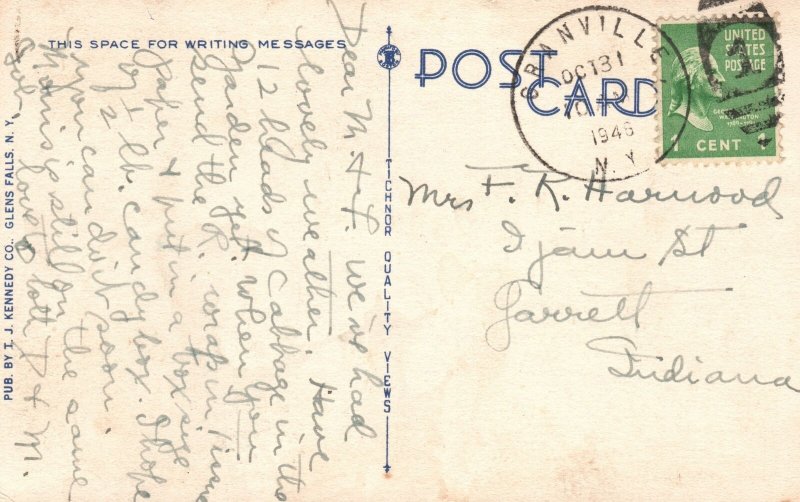 THIS SPACE FOR WRITING MESSAGES
POST CARD
GRANVILLE
OCT 31
1946
N.Y.
UNITED
STATES
POSTAGE
GEORGE
WASHINGTON
1 CENT 1
Dear M. + F. we've had
lovely weather. Have
12 heads of Cabbage in the
garden yet. When you
send the R. wrap in
paper + put in a box size
of ½ lb. candy box. I hope
you can do it soon.
is still on the same
Love to both P + M.
Mrs F. K. Harwood
Ijam St
Garrett
Indiana
TICHNOR QUALITY VIEWS
PUB. BY I. J. KENNEDY CO., GLENS FALLS, N. Y.